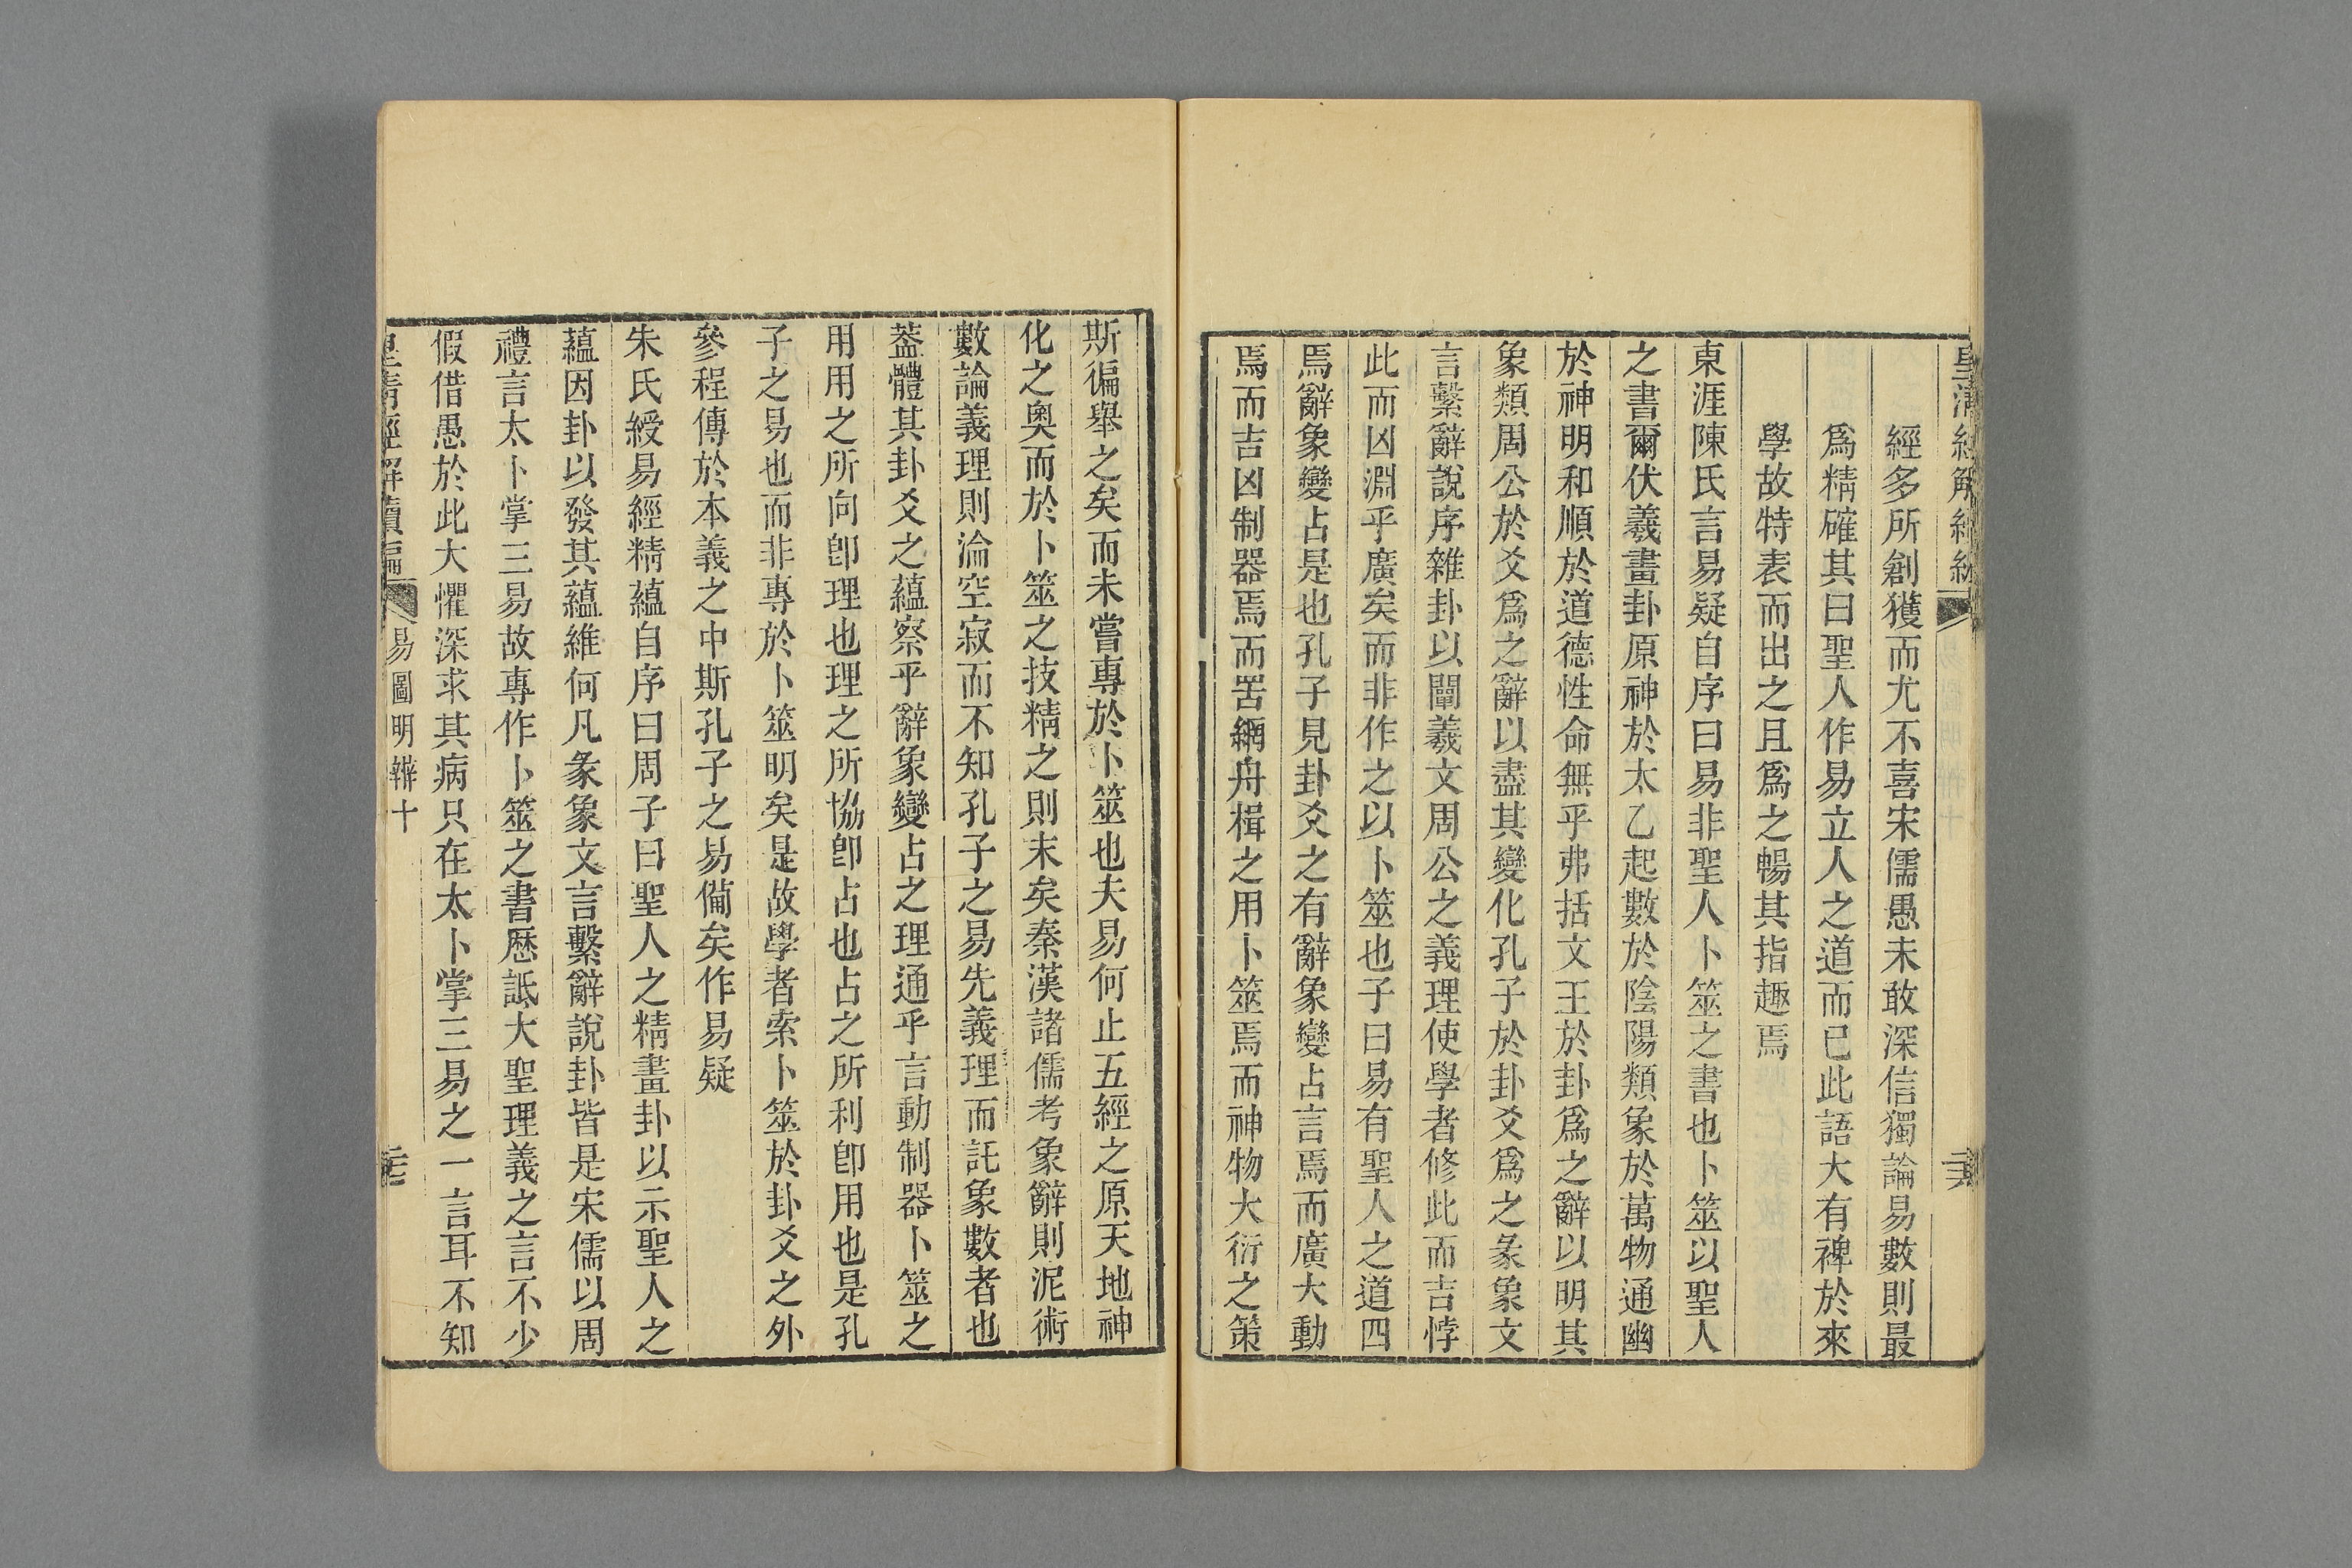 皇清經解續編
經多所創獲而尤不喜宋儒愚未敢深信獨論易數則最
爲精確其曰聖人作易立人之道而已此語大有裨於來
學故特表而出之且爲之暢其指趣焉
東涯陳氏言易疑自序曰易非聖人卜筮之書也卜筮以聖人
之書爾伏羲畫卦原神於太乙起數於陰陽類象於萬物通幽
於神明和順於道德性命無乎弗括文王於卦爲之辭以明其
象類周公於爻爲之辭以盡其變化孔子於卦爻爲之彖象文
言繫辭說序雜卦以闡羲文周公之義理使學者修此而吉悖
此而凶淵乎廣矣而非作之以卜筮也子曰易有聖人之道四
焉辭象變占是也孔子見卦爻之有辭象變占言焉而廣大動
焉而吉凶制器焉而罟網舟楫之用卜筮焉而神物大衍之策
斯徧舉之矣而未嘗專於卜筮也夫易何止五經之原天地神
化之奧而於卜筮之技精之則末矣秦漢諸儒考象辭則泥術
數論義理則淪空寂而不知孔子之易先義理而託象數者也
葢體其卦爻之蘊察乎辭象變占之理通乎言動制器卜筮之
用用之所向卽理也理之所協卽占也占之所利卽用也是孔
子之易也而非專於卜筮明矣是故學者索卜筮於卦爻之外
參程傳於本義之中斯孔子之易備矣作易疑
朱氏綬易經精蘊自序曰周子曰聖人之精畫卦以示聖人之
蘊因卦以發其蘊維何凡彖象文言繫辭說卦皆是宋儒以周
禮言太卜掌三易故專作卜筮之書歷詆大聖理義之言不少
假借愚於此大懼深求其病只在太卜掌三易之一言耳不知
皇清經解續編 易圖明辨十